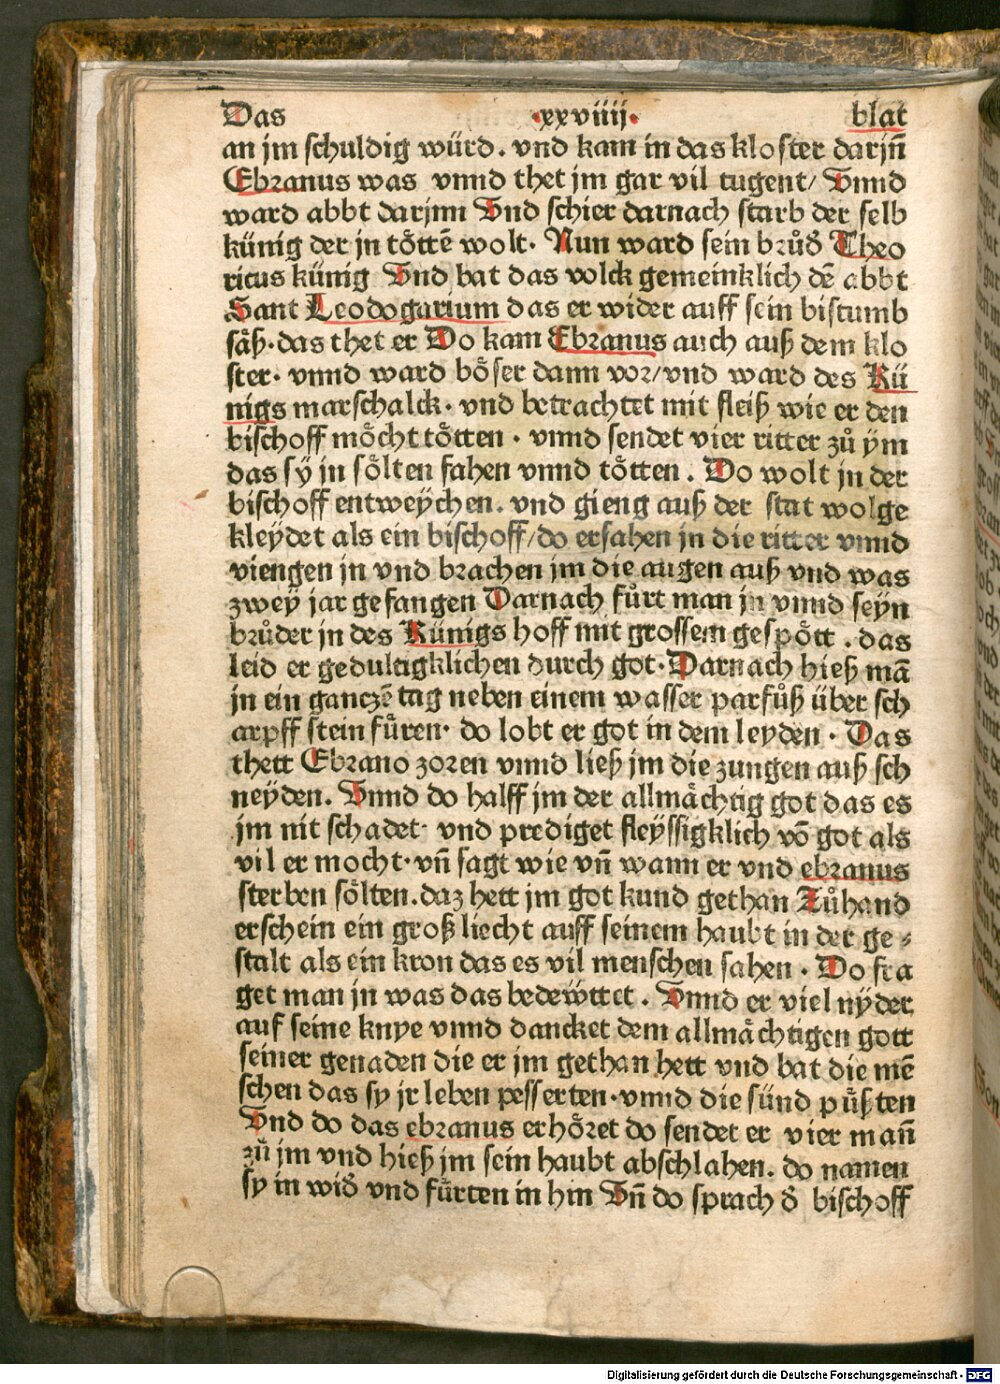 Das .xxviiij. blat
an jm schuldig würd. vnd kam in das kloster darjñ
Ebranus was vnnd thet jm gar vil tugent/ Vnnd
ward abbt darjnn Vnd schier darnach starb der selb
künig der jn töttē wolt. Nun ward sein brůd̄ Theo
ricus künig Vnd bat das volck gemeinklich dē abbt
Sant Leodogarium das er wider auff sein bistumb
säß.das thet er Do kam Ebranus auch auß dem klo
ster. vnnd ward böser dann vor/vnd ward des Kü
nigs marschalck. vnd betrachtet mit fleiß wie er den
bischoff möcht tötten. vnnd sendet vier ritter zů ym
das sÿ jn sölten fahen vnnd tötten. Do wolt jn der
bischoff entweÿchen. vnd gieng auß der stat wolge
kleÿdet als ein bischoff/do ersahen jn die ritter vnnd
viengen jn vnd brachen jm die augen auß vnd was
zweÿ jar gefangen Darnach fůrt man jn vnnd seÿn
brůder in des Künigs hoff mit grossem gespött. das
leid er gedultigklichen durch got. Darnach hieß mā
jn ein ganczē tag neben einem wasser parfůß über sch
arpff stein fůren. do lobt er got in dem leyden. Das
thett Ebrano zoren vnnd ließ jm die zungen auß sch
neÿden. Vnnd do halff jm der allmächtig got das es
jm nit schadet. vnd prediget fleÿssigklich vō got als
vil er mocht. vñ sagt wie vñ wann er vnd ebranus
sterben sölten.daz hett jm got kund gethan Zůhand
erschein ein groß liecht auff seinem haubt in der ge⸗
stalt als ein kron das es vil menschen sahen. Do fra
get man jn was das bedeẅttet. Vnnd er viel nÿder
auf seine knye vnnd dancket dem allmächtigen gott
seiner genaden die er jm gethan hett vnd bat die mē
schen das sy jr leben pesserten.vnnd die sünd půßten
Vnd do das ebranus erhöret do sendet er vier mañ
zů jm vnd hieß jm sein haubt abschlahen. do namen
sÿ in wid̄ vnd fůrten in hin Vñ do sprach d̄ bischoff
Digitalisierung gefördert durch die Deutsche Forschungsgemeinschaft - DFG